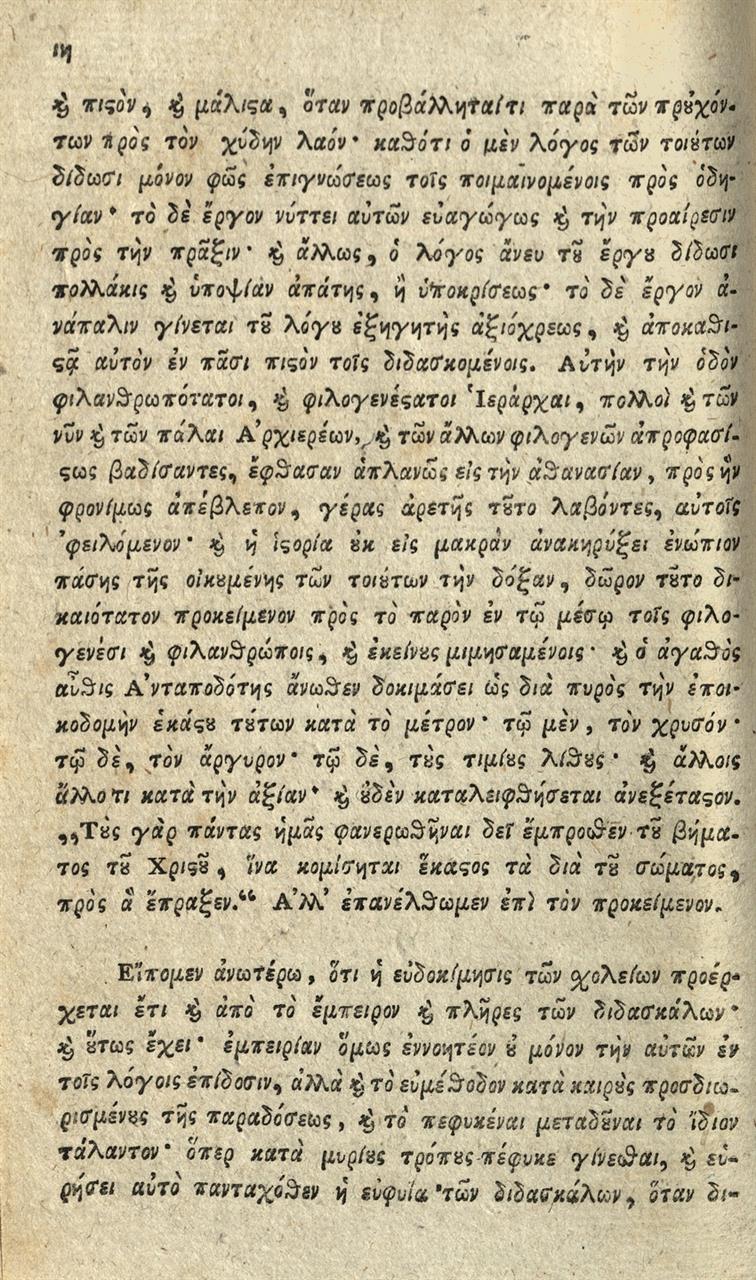 ιη
ϗ πιϛὸν, ϗ μάλιϛα, ὅταν προβάλληταί τι παρὰ τῶν πρȣχόν-
των πρὸς τὸν χύδην λαόν· καθότι ὁ μὲν λόγος τῶν τοιȣ́των
δίδωσι μόνον φῶς ἐπιγνώσεως τοῖς ποιμαινομένοις πρὸς ὁδη-
γίαν· τὸ δὲ ἔργον νύττει αὐτῶν εὐαγώγως ϗ τὴν προαίρεσιν
πρὸς τὴν πρᾶξιν· ϗ ἄλλως, ὁ λόγος ἄνευ τȣ͂ ἔργȣ δίδωσι
πολλάκις ϗ ὑποψίαν ἀπάτης, ἢ ὑποκρίσεως· τὸ δὲ ἔργον ἀ-
νάπαλιν γίνεται τȣ͂ λόγȣ ἐξηγητὴς ἀξιόχρεως, ϗ ἀποκαθι-
ϛᾷ αὐτὸν ἐν πᾶσι πιϛὸν τοῖς διδασκομένοις. Αὐτὴν τὴν ὁδὸν
φιλανθρωπότατοι, ϗ φιλογενέϛατοι Ἱεράρχαι, πολλοὶ ϗ τῶν
νῦν ϗ τῶν πάλαι Ἀρχιερέων, ϗ τῶν ἄλλων φιλογενῶν ἀπροφασί-
ϛως βαδίσαντες, ἔφθασαν ἀπλανῶς εἰς τὴν ἀθανασίαν, πρὸς ἣν
φρονίμως ἀπέβλεπον, γέρας ἀρετῆς τȣ͂το λαβόντες, αὐτοῖς
'φειλόμενον· ϗ ἡ ἱϛορία ȣ̓κ εἰς μακρὰν ἀνακηρύξει ἐνώπιον
πάσης τῆς οἰκȣμένης τῶν τοιȣ́των τὴν δόξαν, δῶρον τȣ͂το δι-
καιότατον προκείμενον πρὸς τὸ παρὸν ἐν τῷ μέσῳ τοῖς φιλο-
γενέσι ϗ φιλανθρώποις, ϗ ἐκείνȣς μιμησαμένοις· ϗ ὁ ἀγαθὸς
αὖθις Ἀνταποδότης ἄνωθεν δοκιμάσει ὡς διὰ πυρὸς τὴν ἐποι-
κοδομὴν ἑκάϛȣ τȣ́των κατὰ τὸ μέτρον· τῷ μὲν, τὸν χρυσόν·
τῷ δὲ, τὸν ἄργυρον· τῷ δὲ, τȣ̀ς τιμίȣς λίθȣς· ϗ ἄλλοις
ἄλλο τι κατὰ τὴν ἀξίαν· ϗ ȣ̓δὲν καταλειφθήσεται ἀνεξέταϛον.
„Τȣ̀ς γὰρ πάντας ἡμᾶς φανερωθῆναι δεῖ ἔμπροσθεν τȣ͂ βήμα-
τος τȣ͂ Χριϛȣ͂, ἵνα κομίσηται ἕκαϛος τὰ διὰ τȣ͂ σώματος,
πρὸς ἃ ἔπραξεν.“ Ἀλλ' ἐπανέλθωμεν ἐπὶ τὸν προκείμενον.
Εἴπομεν ἀνωτέρω, ὅτι ἡ εὐδοκίμησις τῶν σχολείων προέρ-
χεται ἔτι ϗ ἀπὸ τὸ ἔμπειρον ϗ πλῆρες τῶν διδασκάλων·
ϗ ȣ̔́τως ἔχει· ἐμπειρίαν ὅμως ἐννοητέον ȣ̓ μόνον τὴν αὐτῶν ἐν
τοῖς λόγοις ἐπίδοσιν, ἀλλὰ ϗ τὸ εὐμέθοδον κατὰ καιρȣ̀ς προσδιω-
ρισμένȣς τῆς παραδόσεως, ϗ τὸ πεφυκέναι μεταδȣ͂ναι τὸ ἴδιον
τάλαντον· ὅπερ κατὰ μυρίȣς τρόπȣς πέφυκε γίνεσθαι, ϗ εὑ-
ρήσει αὐτὸ πανταχόθεν ἡ εὐφυΐα τῶν διδασκάλων, ὅταν δι-